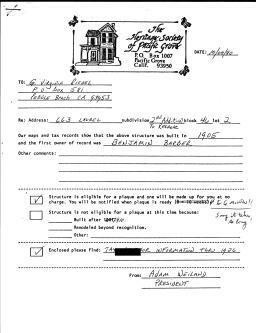 The
Heritage Society
of Pacific Grove
P.O. Box 1007
Pacific Grove
Calif. 93950
DATE:
TO: G Vernon
P.O. Box 581
Pebble Beach CA 93953
Re: Address: 663 LAUREL subdivision 2nd Addition block 46 lot 2
Our maps and tax records show that the above structure was built in 1905
and the first owner of record was BENJAMIN BARBER
Other comments:
Structure is eligible for a plaque and one will be made up for you at no
charge. You will be notified when plaque is ready
Structure is not eligible for a plaque at this time because:
Built after
Remodeled beyond recognition.
Other:
Enclosed please find: INFORMATION THRU 1926
From: ADAM WEILAND
PRESIDENT